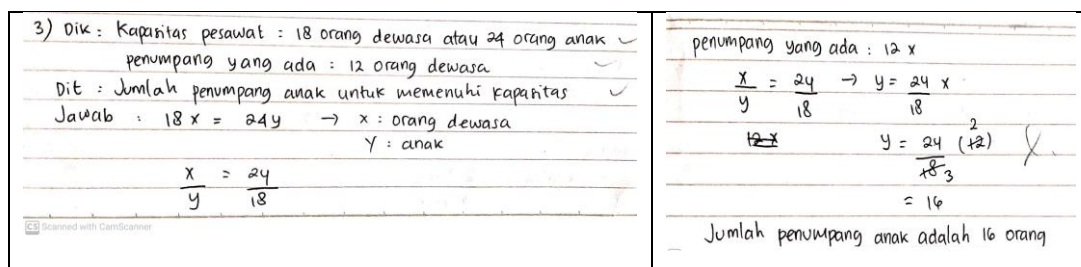 3) Dik : Kapasitas pesawat : 18 orang dewasa atau 24 orang anak
penumpang yang ada : 12 orang dewasa
Dit : Jumlah penumpang anak untuk memenuhi kapasitas
Jawab : 18 x = 24y → x : orang dewasa
Y : anak
x/y = 24/18
CS Scanned with CamScanner
penumpang yang ada : 12 x
x/y = 24/18 → y = 24/18 x
12 x
y = 24/18 3 (12) 2
= 16
Jumlah penumpang anak adalah 16 orang